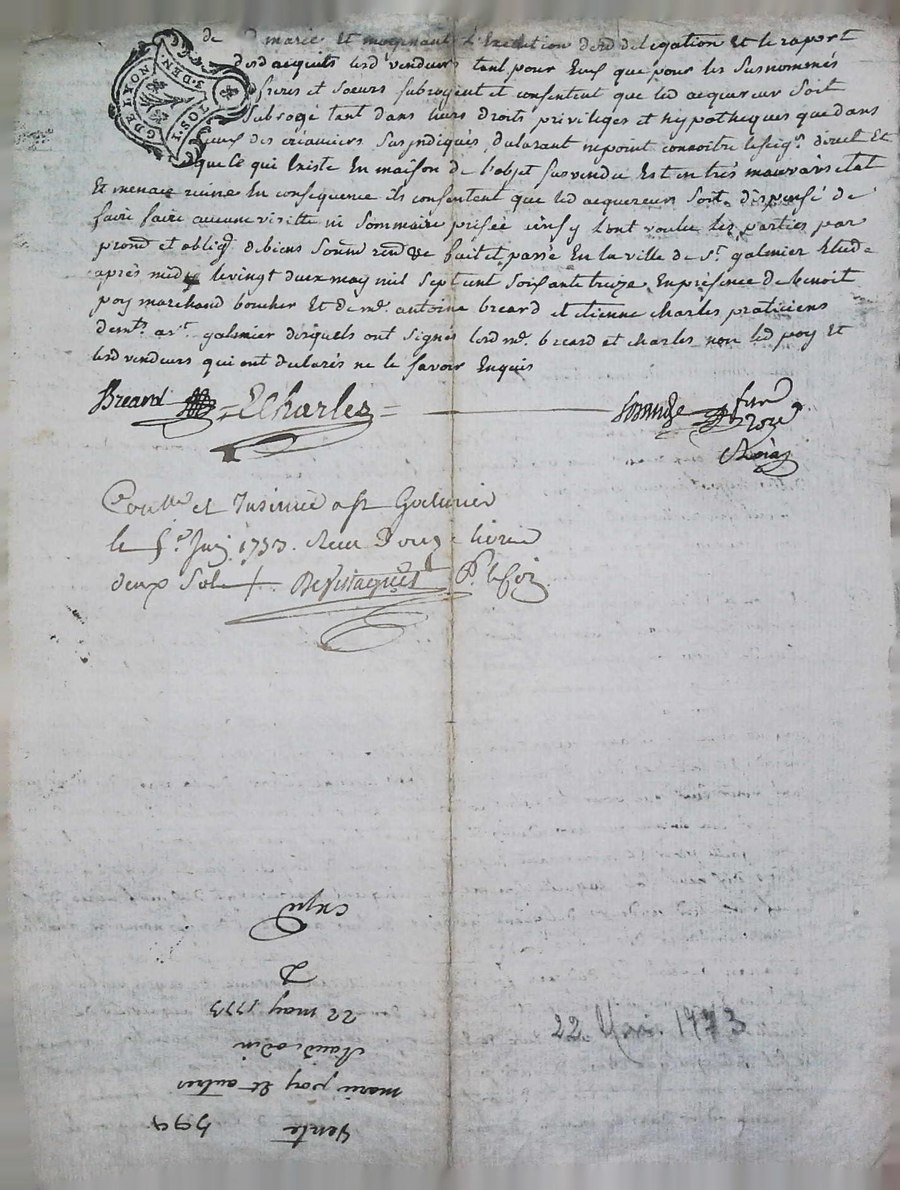 G DE LYON
3. DEN
TOSY
de marie et moyenant l'Execution desd delegation et le raport
desd acquits lesd vendeurs tant pour Eux que pour les susnommés
freres et soeurs subrogent et consentent que led acquereur soit
subrogé tant dans leurs droits privileges et hypotheques que dans
Ceux des créanciers sasyndiqués, declarant ne point connoitre le seigr direct Et
que Ce qui Existe En maison de l'objet susvendu Est en très mauvais etat
Et menace ruine En consequence ils consentent que led acquereur soit dispensé de
faire faire aucune visitte ni sommaire prisée ainsy l'ont voulu les parties par
prom et oblig de biens soum ren & Ce fait et passé En la ville de St galmier Etude
après midy le vingt deux may mil sept cent soixante treize En presence de benoit
poy marchand boucher Et de me antoine breard et etienne charles praticiens
demts a st galmier desquels ont signés lesd me breard et charles non led poy Et
lesd vendeurs qui ont declarés ne le savoir Enquis
Breard = ECharles =
Conlle et Insinué a st Galmier
le 5e Juin 1773. Reçu Douze livres
deux sols
vente 599
marie poy Et autres
a
22 may 1773
2
Expd
22. Mai. 1773